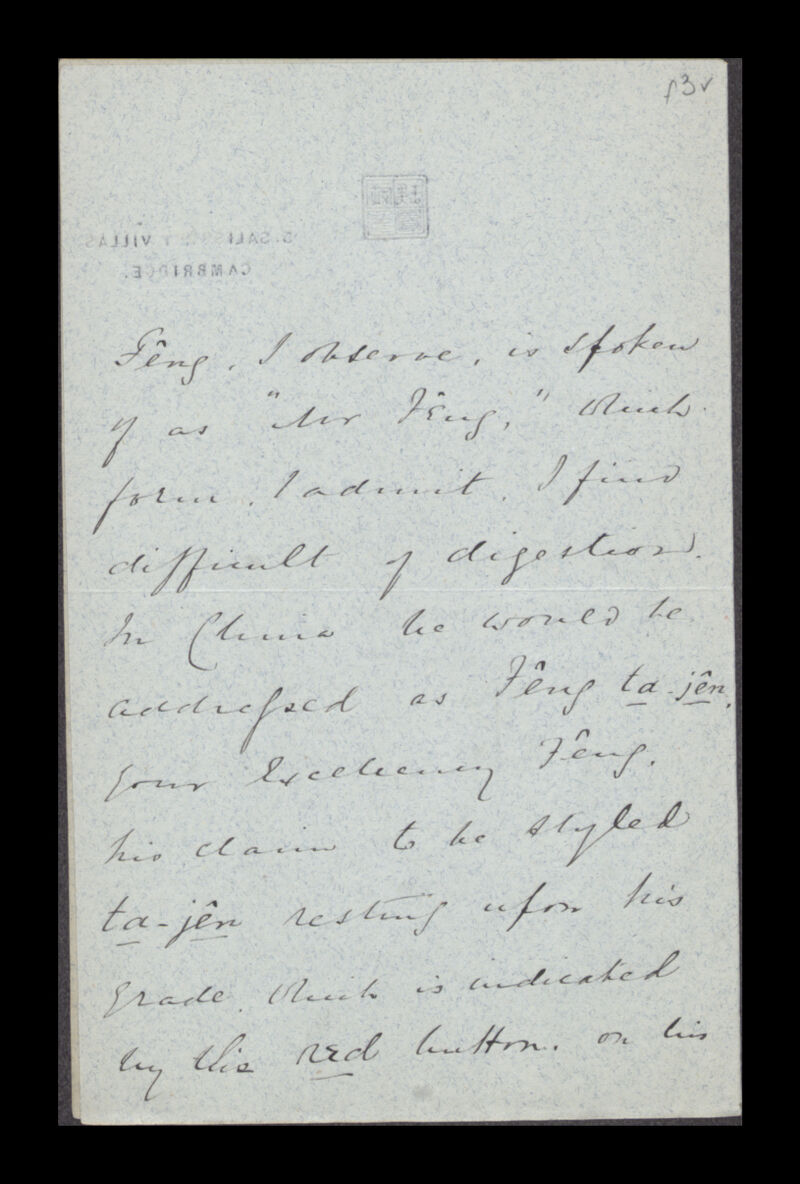 f3v
5. SALISBURY VILLAS
CAMBRIDGE.
Fêng, I observe, is spoken
of as "Mr Fêng," which
form, I admit, I find
difficult of digestion.
In China he would be
addressed as Fêng ta-jên,
your Excellency Fêng,
his claim to be styled
ta-jên resting upon his
grade, which is indicated
by the red button, on his